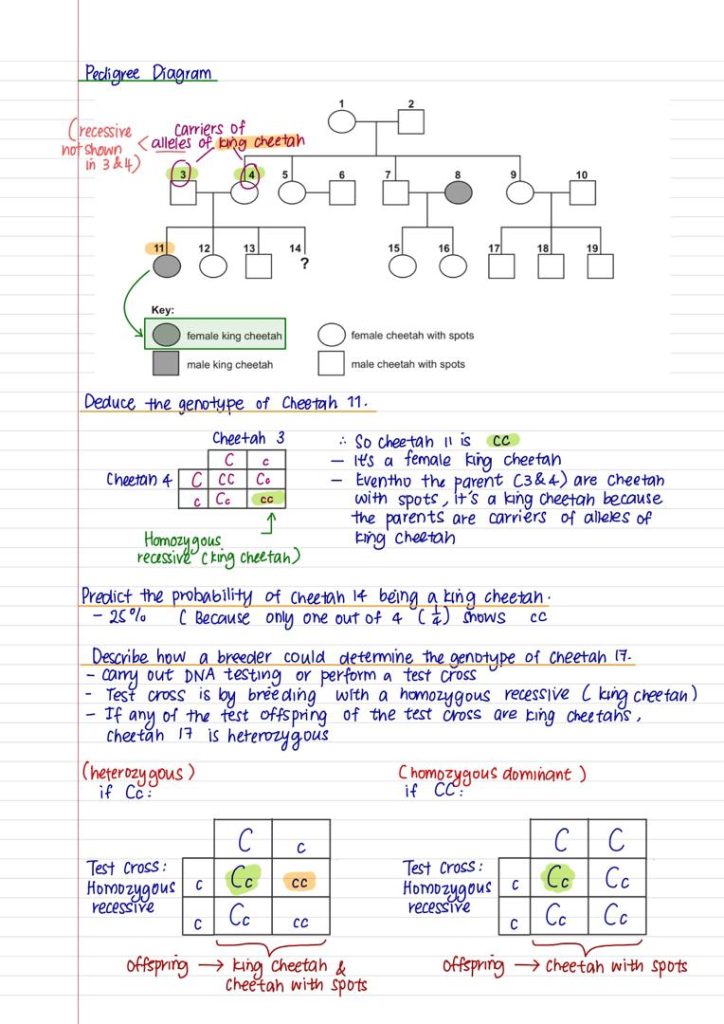 Pedigree Diagram
1 2
(recessive not shown in 3 & 4)
carriers of
alleles of king cheetah
3 4 5 6 7 8 9 10
11 12 13 14 15 16 17 18 19
?
Key:
female king cheetah female cheetah with spots
male king cheetah male cheetah with spots
Deduce the genotype of Cheetah 11.
Cheetah 3
C c
Cheetah 4 C CC Cc
c Cc cc
Homozygous
recessive (king cheetah)
∴ So cheetah 11 is cc
— It's a female king cheetah
— Eventho the parent (3&4) are cheetah
with spots, it's a king cheetah because
the parents are carriers of alleles of
king cheetah
Predict the probability of cheetah 14 being a king cheetah.
- 25% ( Because only one out of 4 (1/4) shows cc
Describe how a breeder could determine the genotype of cheetah 17.
- Carry out DNA testing or perform a test cross
- Test cross is by breeding with a homozygous recessive (king cheetah)
- If any of the test offspring of the test cross are king cheetahs,
cheetah 17 is heterozygous
(heterozygous)
if Cc:
C c
Test cross:
Homozygous
recessive
c Cc cc
c Cc cc
offspring → king cheetah &
cheetah with spots
(homozygous dominant)
if CC:
C C
Test cross:
Homozygous
recessive
c Cc Cc
c Cc Cc
offspring → cheetah with spots